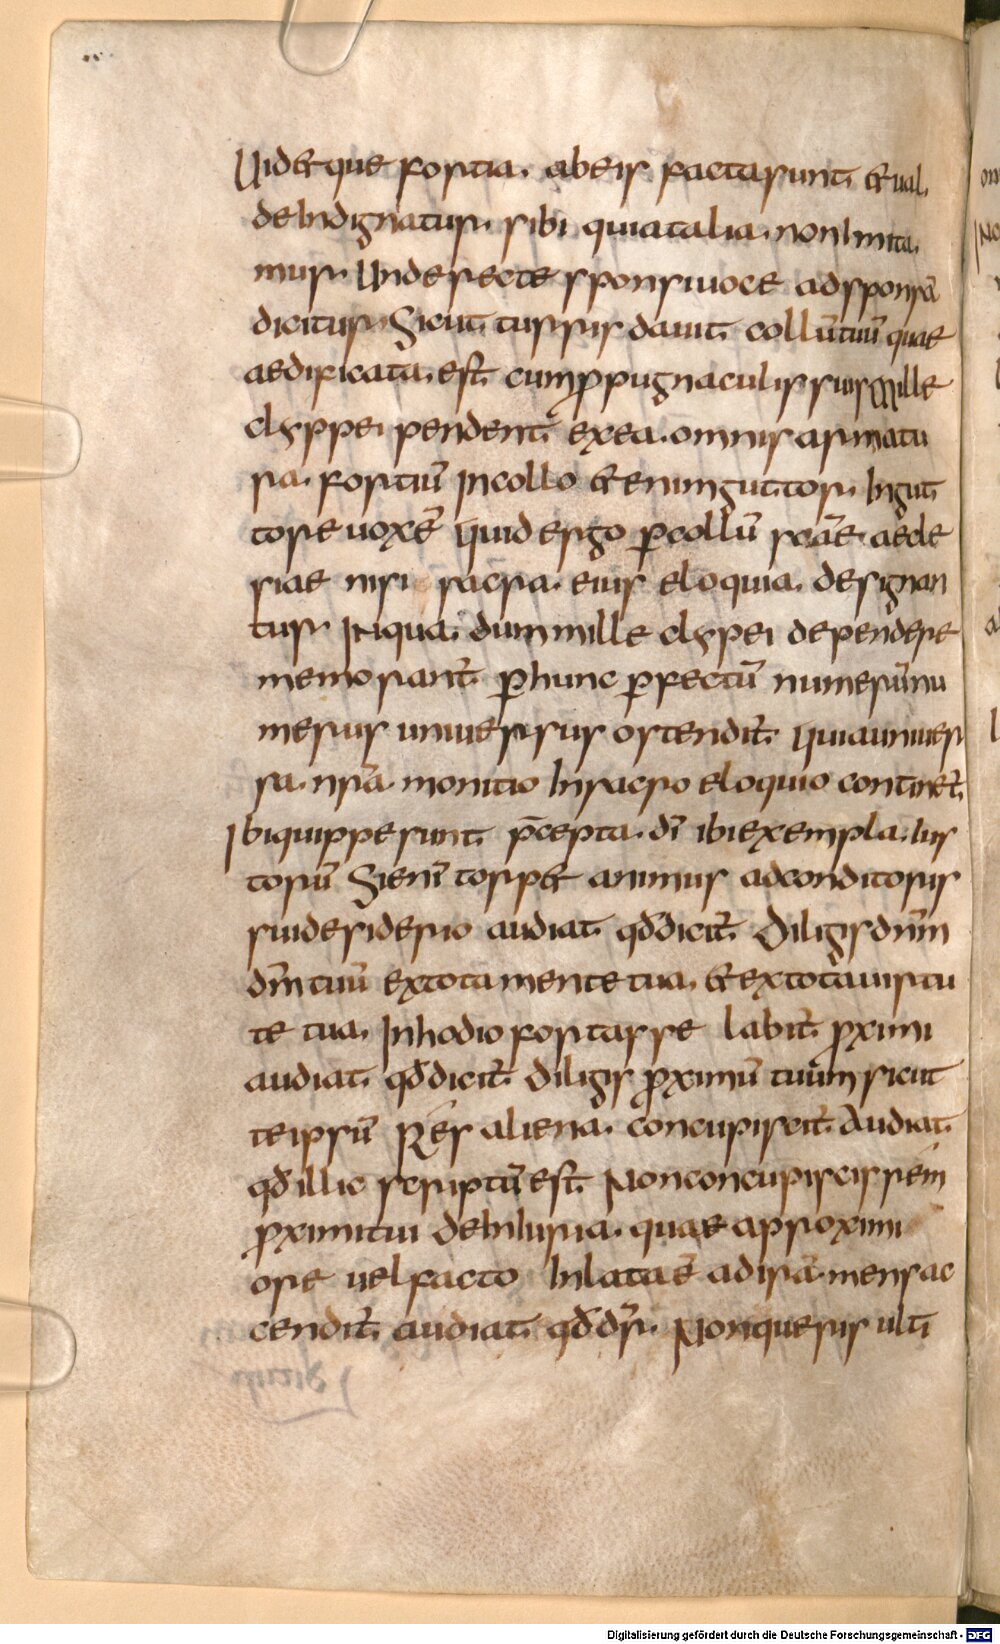 Uidetque fortia. abeis facta sunt. et ual.
de Indignatur. sibi quia talia. non Imita.
mur. Unde recte sponsi uoce ad sponsā
dicitur. Sicut. turris dauit. collū tuū quae
aedificata. est. cum ꝓpugnaculis suis Mille
clyppei pendent. exea. omnis armatu
ra. fortiū Incollo et enim gut.tor. In gut
tore uox ē. Quid ergo ꝑcollū scāe. aecle
siae nisi sacra. eius eloquia. designan
tur. Inqua. dum mille clypei dependere
memorant. ꝑhunc ꝑfectū numerū nu
merus uniuersus ostendit. Quia uniuer
sa. nrā. monitio In sacro eloquio continet.
Ibi quippe sunt. p̄cepta. dī ibi exempla. ius
torū Si enī torpet animus ad conditoris
sui desiderio audiat. qđ dicit. Diligis dnm̄
dm̄ tuū extota mente tua. et extota uirtu
te tua. In hodio fortasse labit. ꝓximi
audiat. qđ dicit. Diligis ꝓximū tuūm sicut
te ipsū Res aliena. concupiscit. Audiat.
qđ illic scriptū est. Non concupiscis rem̄
ꝓximi tui de Iniuria. quae a proximi
ore uel facto Inlata ē ad irā. mens ac
cendit. audiat. qđ dr̄. Non queris ulti
ditur
Digitalisierung gefördert durch die Deutsche Forschungsgemeinschaft - DFG